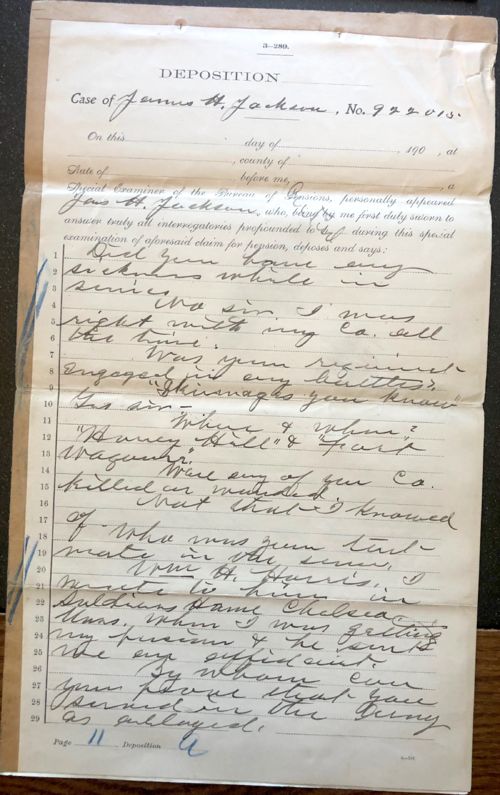 3—289.
DEPOSITION
Case of James H. Jackson, No. 922015.
On this day of , 190 , at
, county of
State of before me, , a
Special Examiner of the Bureau of Pensions, personally appeared
Jas H. Jackson, who, being by me first duly sworn to
answer truly all interrogatories propounded to during this special
examination of aforesaid claim for pension, deposes and says:
1 Did you have any
2 sickness while in
3 service
4 No sir I was
5 right with my Co. all
6 the time.
7 Was your regiment
8 engaged in any battles?
9 "Skirmages you know"
10 Yes sir—
11 Where & when?
12 "Honey Hill" & "Fort
13 Wagoner".
14 Were any of your Co.
15 killed or wounded.
16 Not that I knowed
17 of
18 Who was your tent
19 mate in the service.
20 Wm H. Harris, I
21 wrote to him in
22 Soldiers Home Chelsea
23 Mass, when I was getting
24 my pension & he sent
25 me an affidavit.
26 By whom can
27 you prove that you
28 served in the Army
29 as alleged.
Page 11 Deposition A